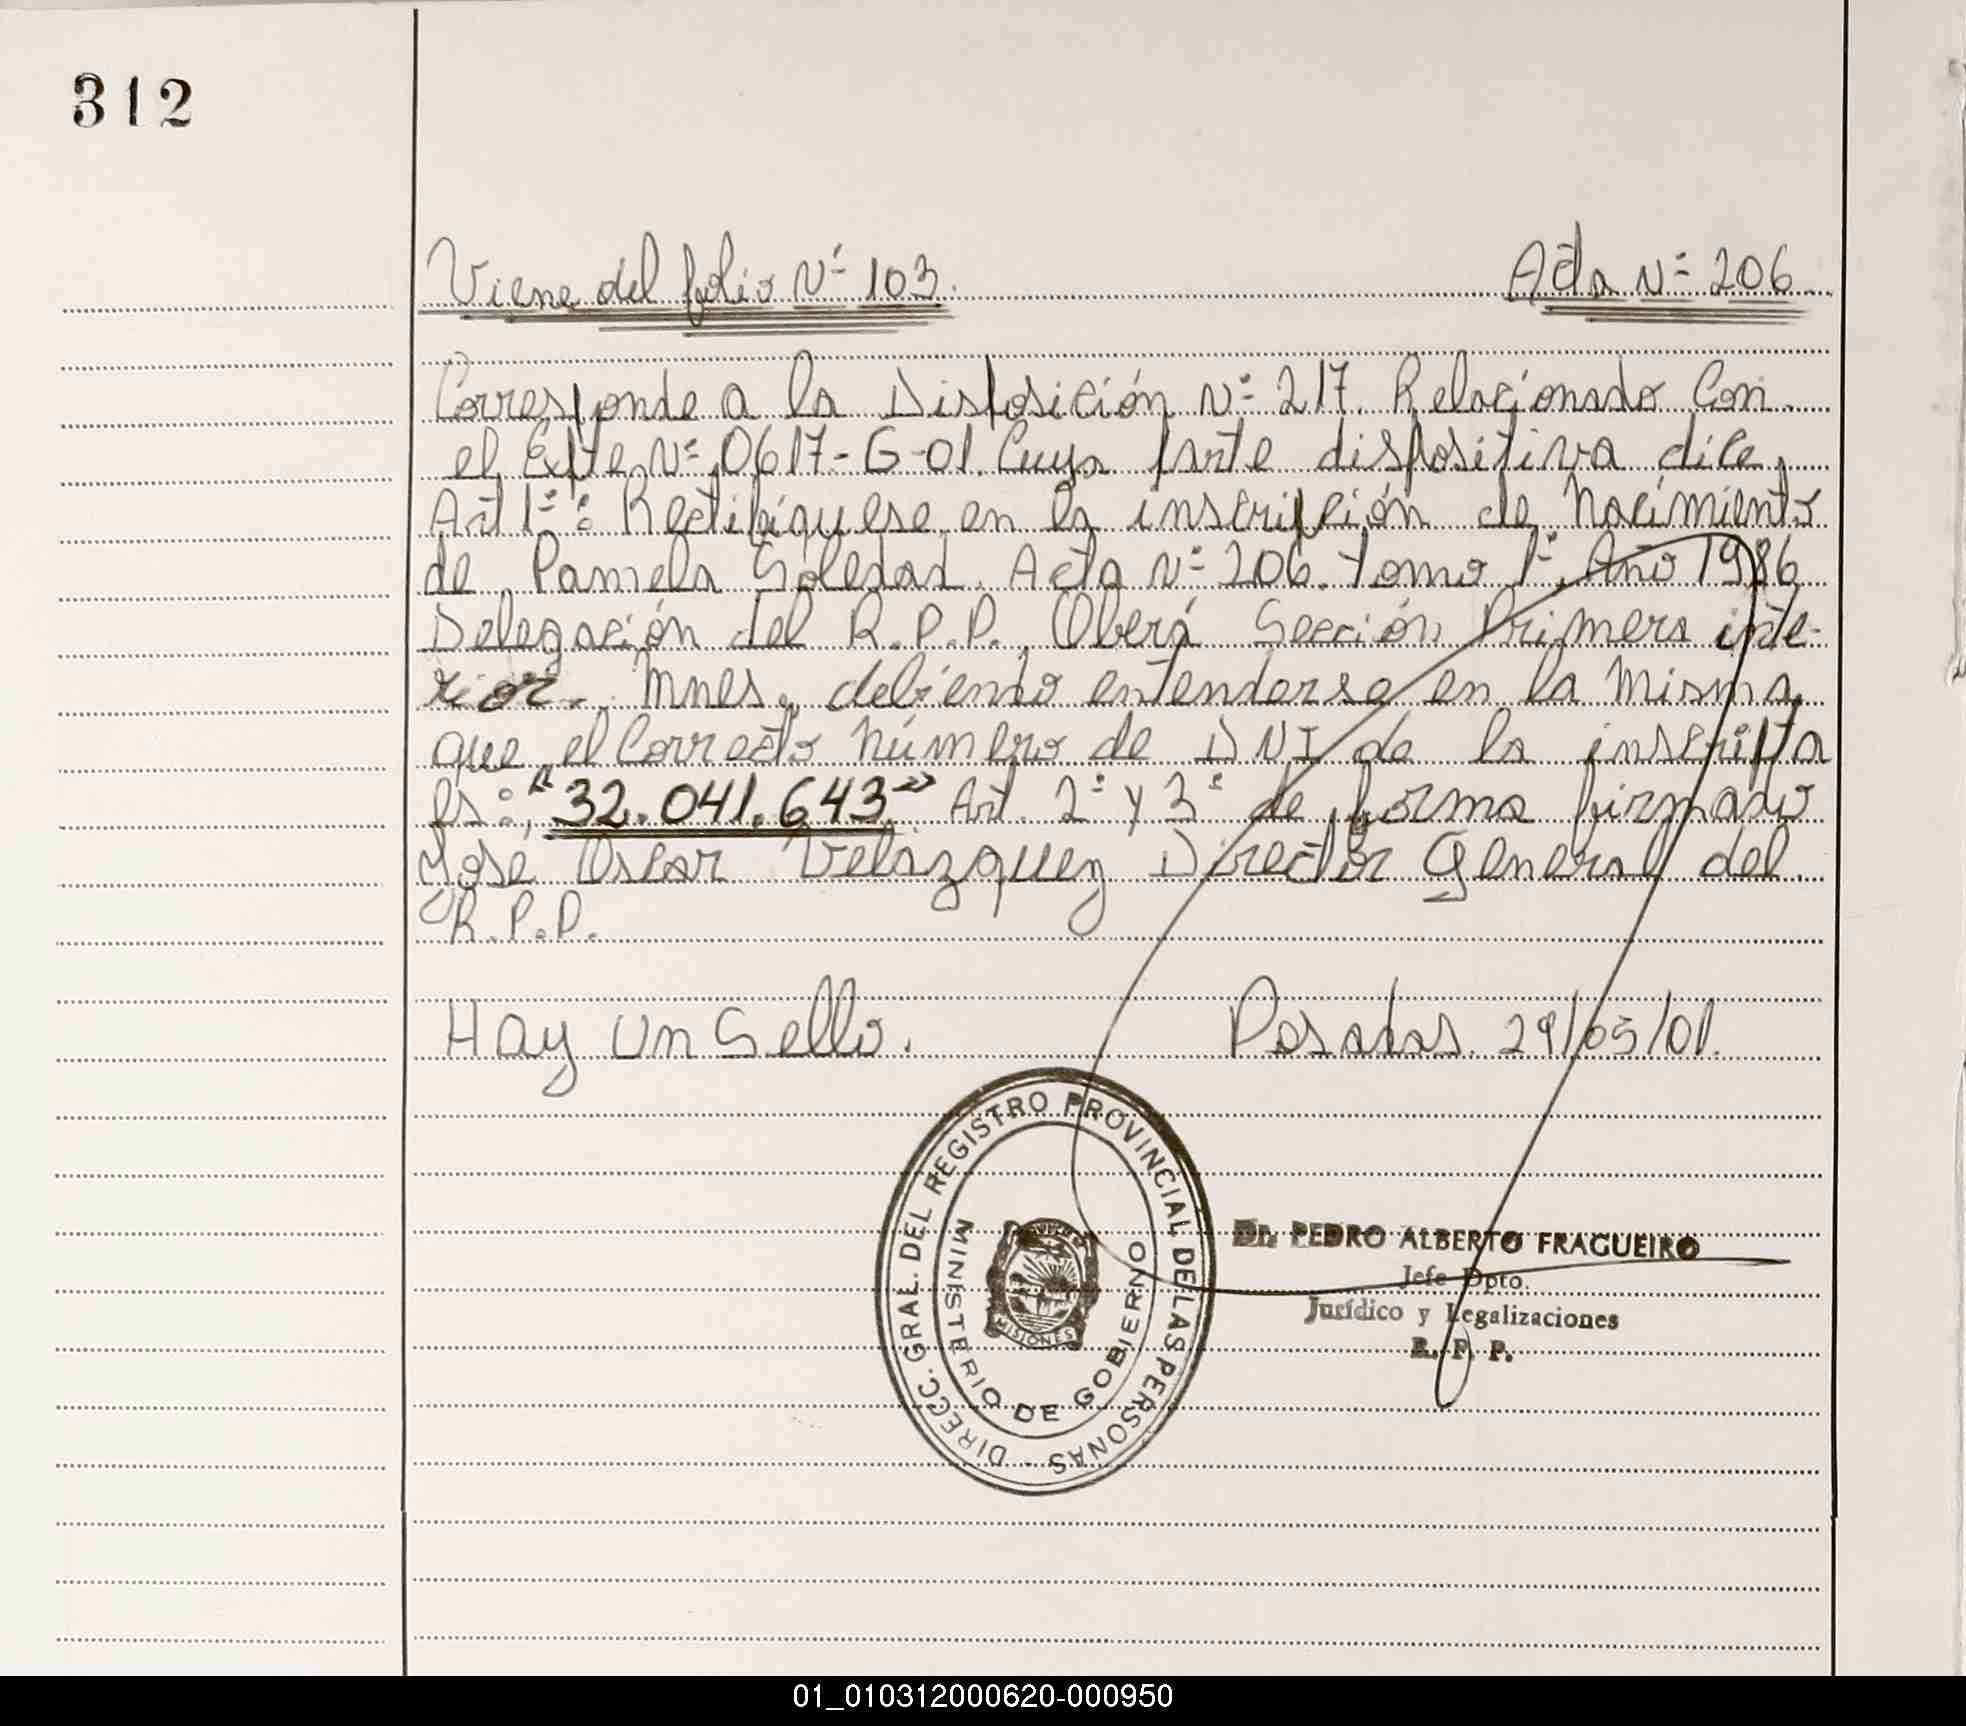 312
Viene del folio Nº 103. Acta Nº 206
Corresponde a la Disposición Nº 217. Relacionado Con
el Expte. Nº 0617-G-01. Cuya parte dispositiva dice,
Art 1º: Rectifíquese en la inscripción de Nacimiento
de Pamela Soledad. Acta Nº 206. Tomo 1º. Año 1986
Delegación del R.P.P. Oberá Sección Primera inte-
rior. Mnes, debiendo entenderse en la Misma,
que el Correcto Número de DNI de la inscripta
es: "32.041.643" Art. 2º y 3º de forma firmado
José Oscar Velázquez Director General del
R.P.P.
Hay Un Sello. Posadas. 29/05/01.
DIRECC. GRAL. DEL REGISTRO PROVINCIAL DE LAS PERSONAS
MINISTERIO DE GOBIERNO
MISIONES
Dr. PEDRO ALBERTO FRAGUEIRO
Jefe Dpto.
Jurídico y Legalizaciones
R. P. P.
01_010312000620-000950